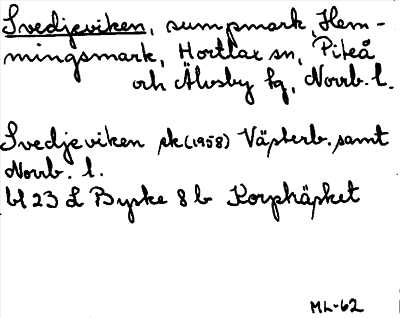 Svedjeviken, sumpmark, Hem-
mingsmark, Hortlax sn, Piteå
och Älvsby tg, Norrb. l.
Svedjeviken ek (1958) Västerb. samt
Norrb. l.
bl 23 L Byske 8 b Korphäsket
ML-62